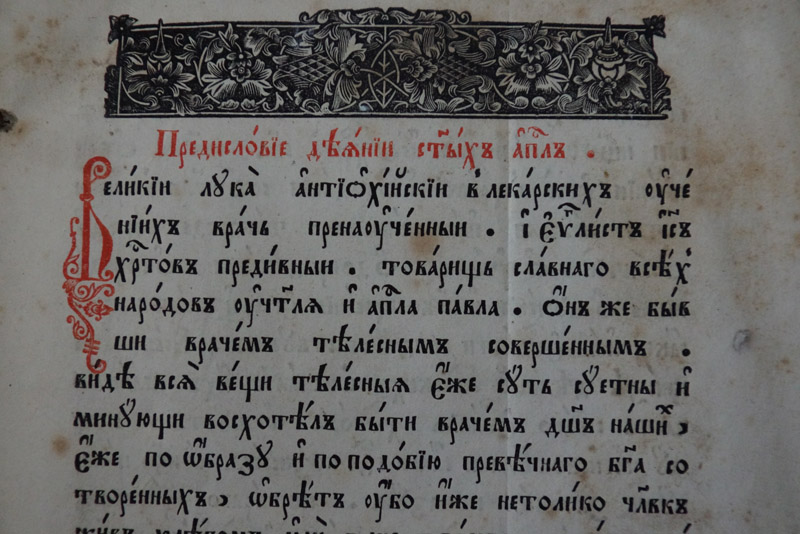 Предисло́вїе дѣѧ́нїи ст҃ы́хъ а҆пⷭ҇лъ .
Вели́кїи лука̀ а҆нтїѻхі́йскїи в̾лека́рскихъ оу҆че́
нїихъ вра́чь пренаоу҆че́нныи . і҆ є҆ѵⷢ҇ли́стъ і҆с҃ъ
хрⷭ҇то́въ преди́вныи . това́рищь сла́внаго всѣ́хъ
наро́довъ оу҆чт҃лѧ и҆ а҆пⷭ҇ла па́вла . Ѻ҆́нъ же бы́в
ши враче́мъ тѣле́снымъ соверше́ннымъ .
ви́дѣ всѧ̀ ве́щи тѣле́сныѧ є҆́же сꙋ́ть сꙋ́етны и҆
минꙋ́ющи восхотѣ́лъ бы́ти враче́мъ дш҃ъ на́ши́хъ ,
є҆́же по ѡ҆́бразꙋ и҆ по подо́бїю превѣ́чнаго бг҃а со
творе́нныхъ , ѡ҆брѣ́тъ оу҆́бо и҆́же нетоли́ко чл҃вкъ